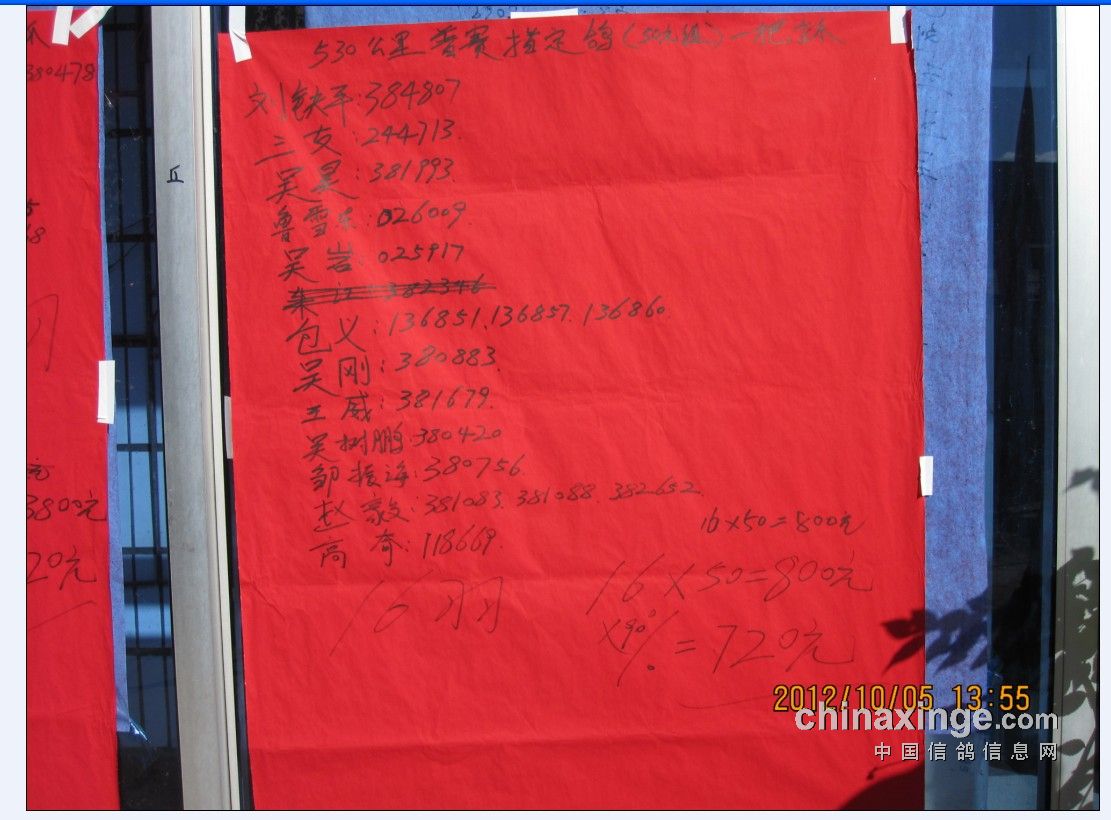 530公里普赛指定鸽(50元组)一把
刘铁军:384807
三友:244713.
吴昊:381993.
鲁雪东:026009.
吴岩:025917
江:382346
包义:136851.136857.136860.
吴刚:380883.
王威:381679.
吴树鹏:380420
邹振海:380756.
赵毅:381083.381088.382652.
高奇:118669.
16羽
16×50=800元
16×50=800元
×90%=720元
380478
3800元
20元
2012/10/05 13:55
chinaxinge.com
中国信鸽信息网